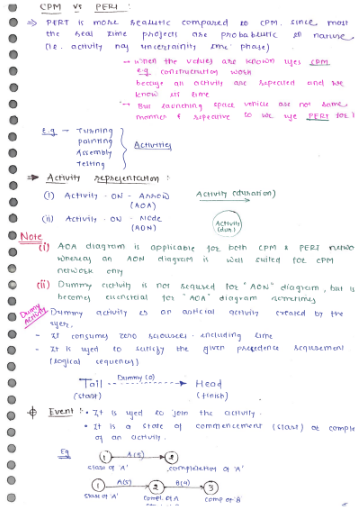 CPM vs PERT :
⇒ PERT is more realistic compared to CPM. since most
the real time projects are probabilistic in nature
(i.e. activity has uncertainty time phase)
→ when the values are known uses CPM
e.g construction work
because an activity are repeated and we
know its time
→ But launching space vehicle are not same
manner & repetitive so we use PERT for
e.g → Turning
painting
Assembly
Testing
Activities
⇒ Activity representation :
(i) Activity - ON - Arrow
(AOA)
Activity (duration)
(ii) Activity - ON - Node
(AON)
Activity
(dur)
Note
(i) AOA diagram is applicable for both CPM & PERT netwo
whereas an AON diagram is well suited for CPM
network only
(ii) Dummy activity is not required for "AON" diagram, but is
becomes essential for "AOA" diagram sometimes
Dummy
Activity
Dummy activity is an artificial activity created by the
user.
- It consumes zero resources including time
- It is used to satisfy the given precedence requirement
(logical sequence)
Tail Dummy (0) Head
(start) (finish)
Event : • It is used to join the activity.
• It is a state of commencement (start) or comple
of an activity.
Eg
1 A(5) 2
start of 'A' completion of 'A'
1 A(5) 2 B(4) 3
start of A' compl. of A comp of B'